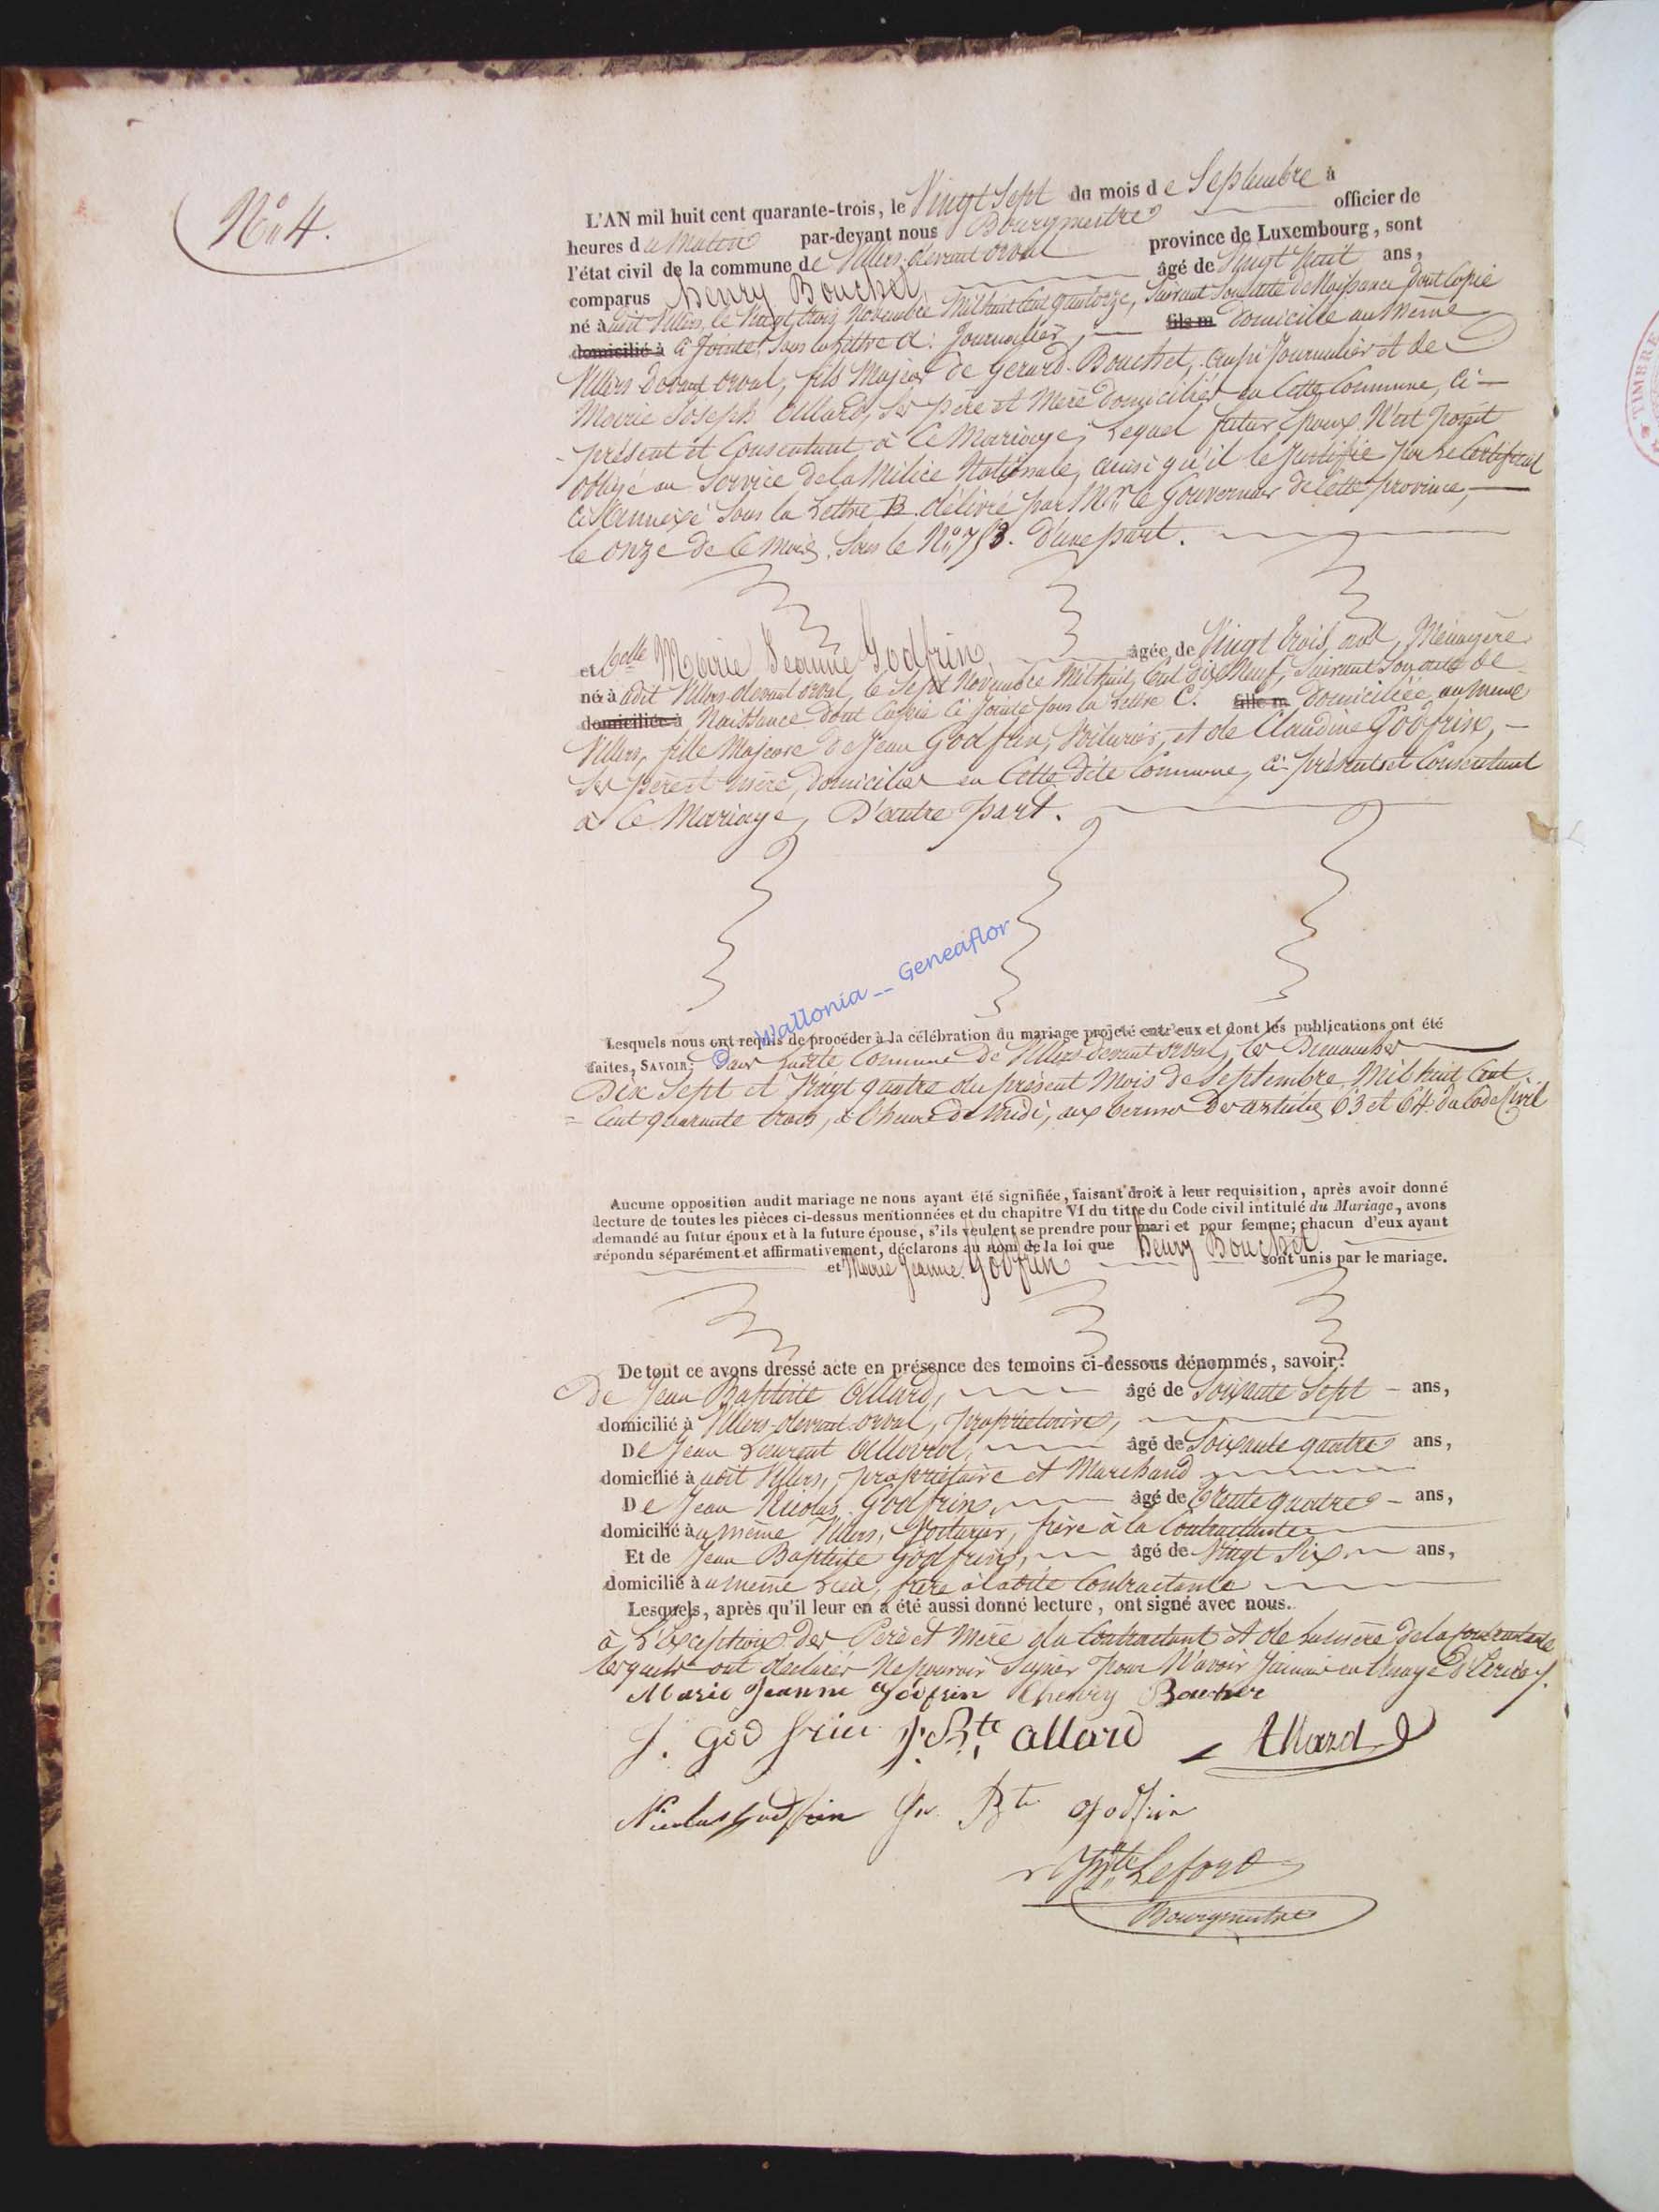 N° 4.
L'AN mil huit cent quarante-trois, le Vingt Sept du mois de Septembre à
heures du Matin par-devant nous Bourgmestre officier de
l'état civil de la commune de Villers-devant orval province de Luxembourg, sont
comparus henry Bouchet, âgé de Vingt huit ans,
né à udit Villers, le Vingt trois Novembre Mil huit Cent quatorze, Suivant Son acte de Naissance dont Copie
domicilié à Ci Jointe, Sous la lettre A: Journalier, fils m domicilié au Même
Villers-Devant orval, fils Majeur de Gerard Bouchet, aussi Journalier et de
Marie Joseph Allard, Ses père et Mère domiciliés en Cette Commune, Ci-
présent et Consentant à Ce Mariage; Lequel futur Epoux N'est point
obligé au Service de la Milice Nationale, ainsi qu'il le Justifie par Le Certificat
Ci annexé Sous la Lettre B. délivré par Mr. le Gouverneur de Cette province,
le onze de Ce Mois, Sous le N° 753. d'une part.
et Delle Marie Jeanne Godfrin, âgée de Vingt trois ans, Ménagère
né à udit Villers-devant orval, le Sept Novembre Mil huit Cent dix Neuf, Suivant Son acte de
domiciliée à Naissance dont Copie Ci Jointe sous la Lettre C. fille m Domiciliée au même
Villers, fille Majeure de Jean Godfrin, Voiturier, et de Claudine Godfrin,
Ses père et mère, domiciliés en Cette dite Commune, Ci-présents et Consentant
à Ce Mariage, D'autre part.
© Wallonia -- Geneaflor
Lesquels nous ont requis de procéder à la célébration du mariage projeté entr'eux et dont les publications ont été
faites, SAVOIR: Dans ladite Commune de Villers devant orval, les Dimanches
Dix Sept et Vingt quatre du présent Mois de Septembre Mil huit Cent
= Cent quarante trois, à l'heure de Midi, aux termes des articles 63 et 64 du Code Civil
Aucune opposition audit mariage ne nous ayant été signifiée, faisant droit à leur requisition, après avoir donné
lecture de toutes les pièces ci-dessus mentionnées et du chapitre VI du titre du Code civil intitulé du Mariage, avons
demandé au futur époux et à la future épouse, s'ils veulent se prendre pour mari et pour femme; chacun d'eux ayant
répondu séparément et affirmativement, déclarons au nom de la loi que henry Bouchet
et Marie Jeanne Godfrin sont unis par le mariage.
De tout ce avons dressé acte en présence des temoins ci-dessous dénommés, savoir:
De Jean Baptiste Allard, âgé de Soixante Sept ans,
domicilié à Villers-devant-orval, propriétaire,
De Jean Laurent Allard, âgé de Soixante quatre ans,
domicilié à udit Villers, propriétaire et Marchand
De Jean Nicolas Godfrin, âgé de trente quatre ans,
domicilié à u même Villers, Voiturier, frère à la Contractante
Et de Jean Baptiste Godfrin, âgé de Vingt Six ans,
domicilié à u même Lieu, frère à ladite Contractante
Lesquels, après qu'il leur en a été aussi donné lecture, ont signé avec nous.
à L'Exception des Père et Mère du Contractant et de la mère de la Contractante
lesquels ont déclarés Ne pouvoir Signer pour N'avoir Jamais eu l'usage d'Ecrire.
Marie Jeanne Godfrin henry Bouchet
J. God frin J. Bte allard Allard
Nicolas Godfrin Jn Bte Godfrin
J Bte Lefort
Bourgmestre
TIMBRE